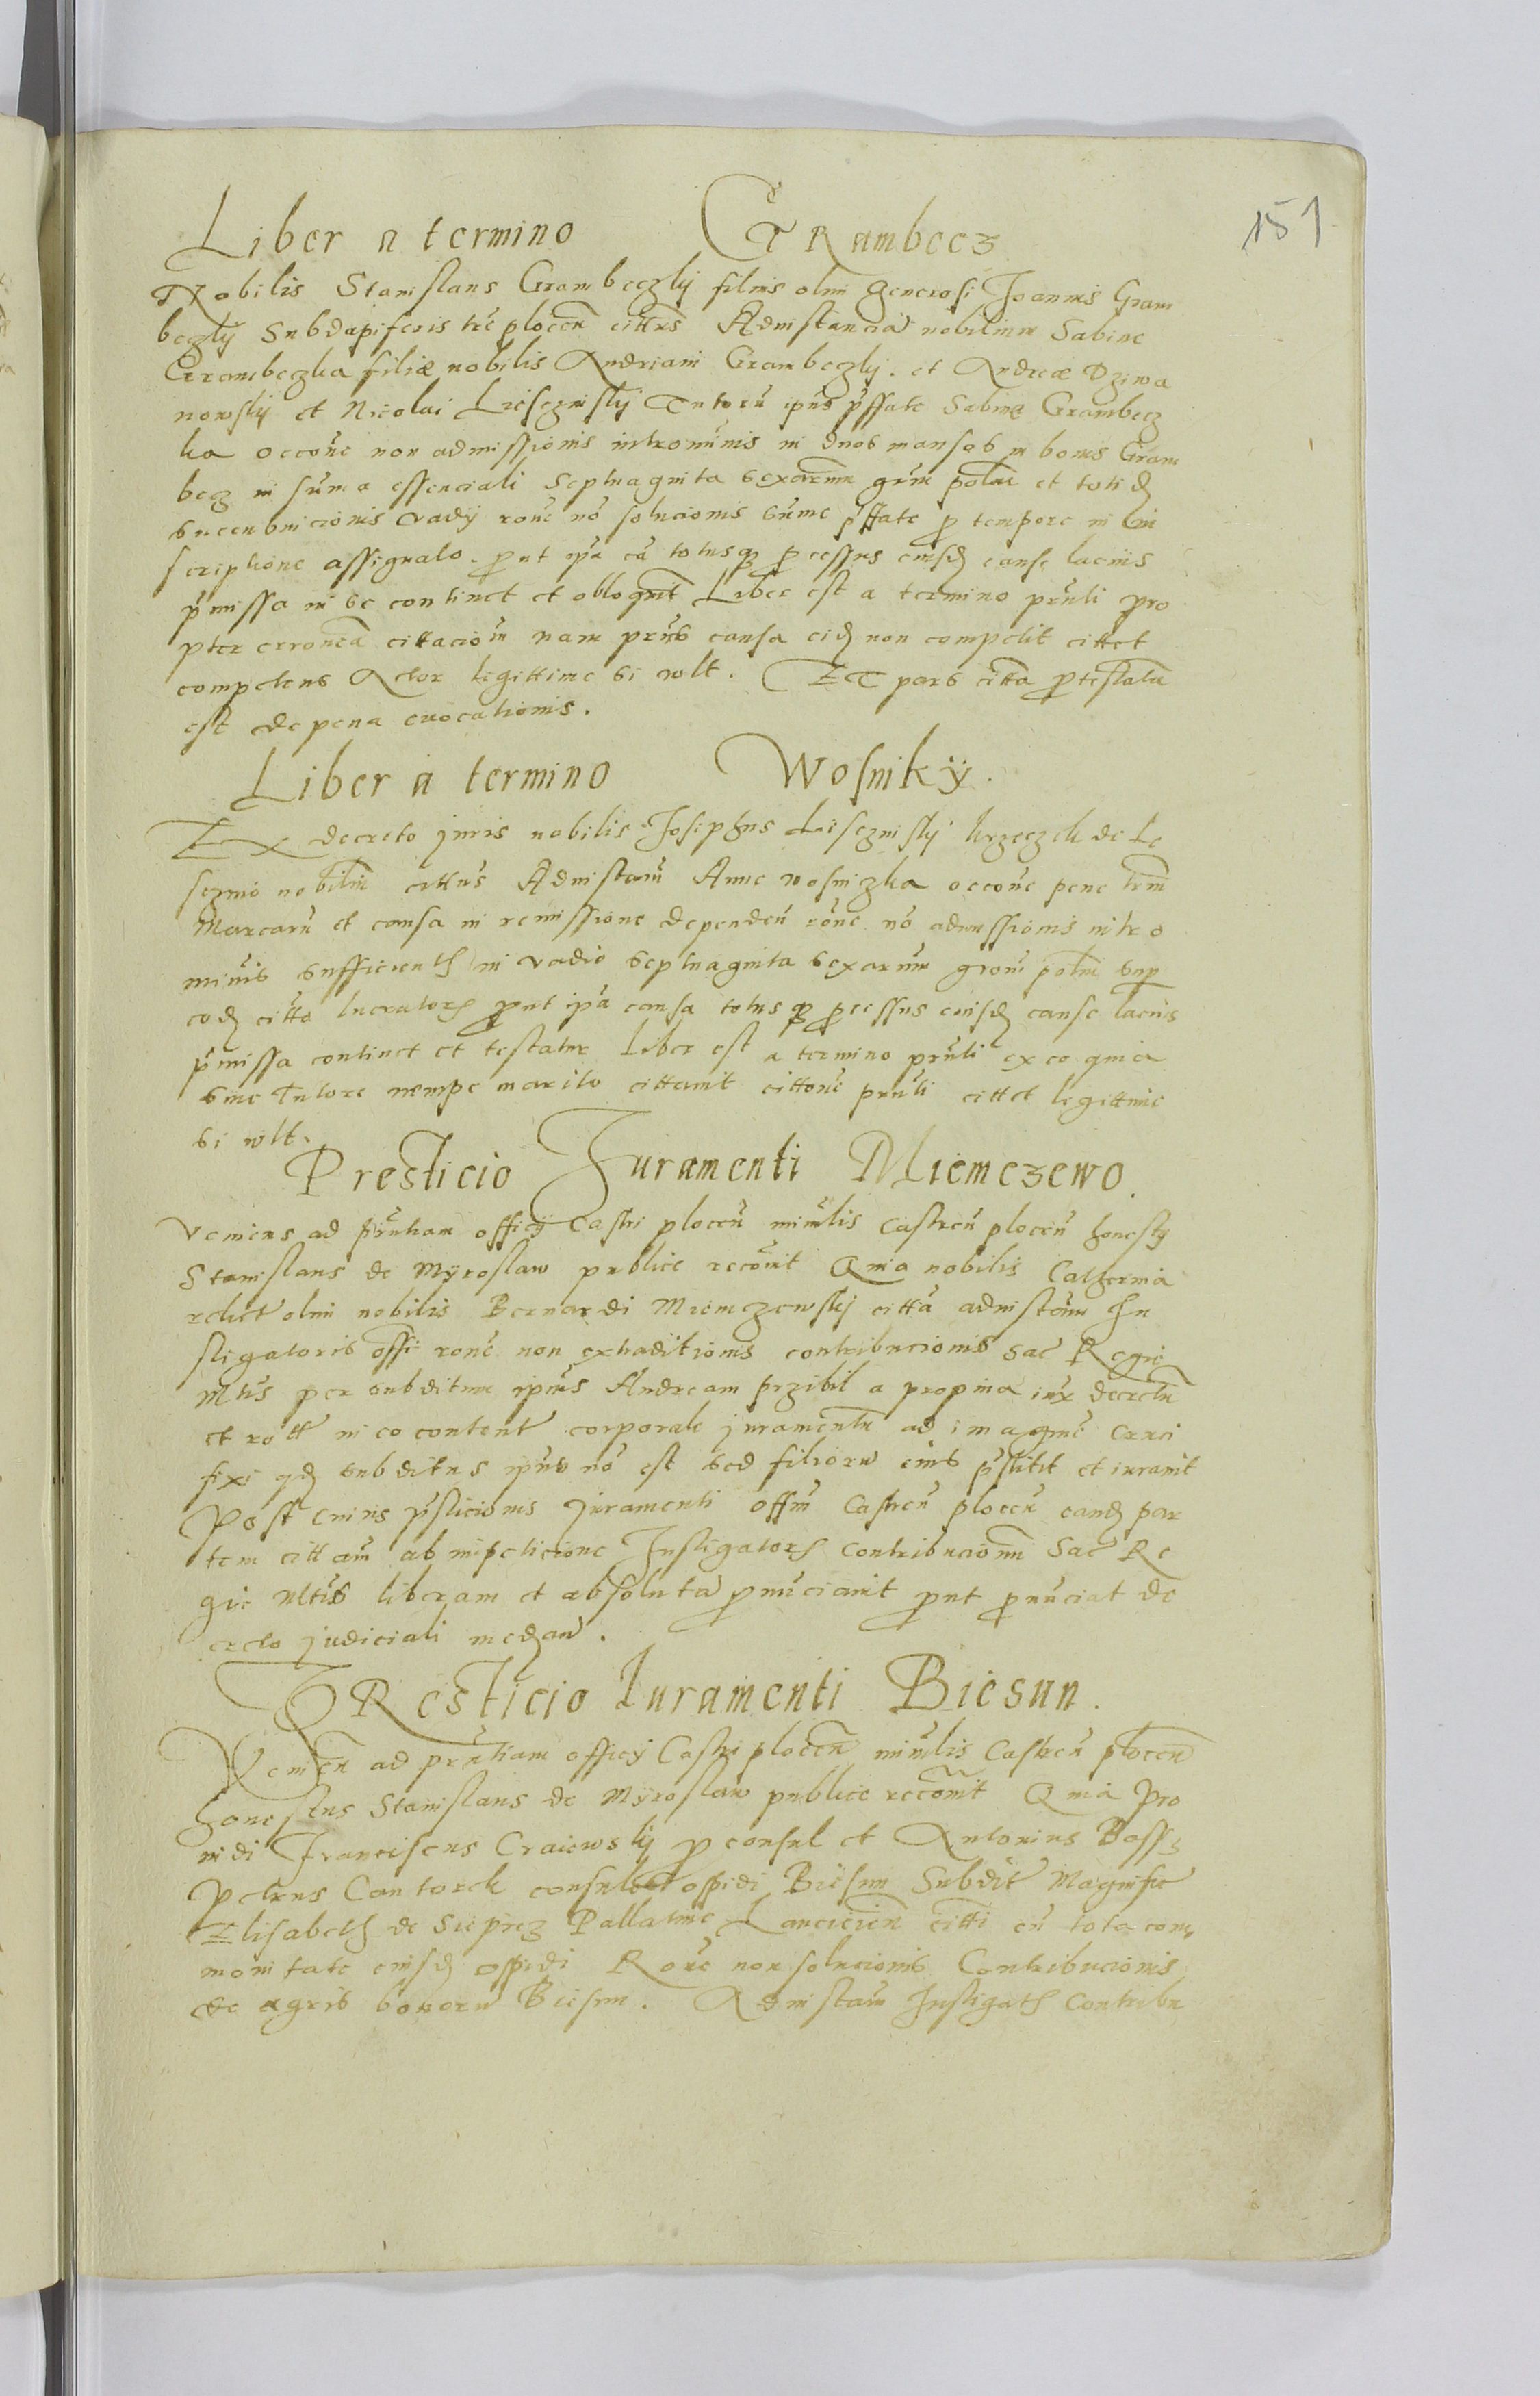 151
Liber a termino GRambecz
Nobilis Stanislaus Grambeczky filius olim generosi Joannis Gram
beczky Subdapiferis tre plocen̄ cittus Ad instanciā nobilium Sabine
Grambeczka filiæ nobilis Andriani Grambeczky. et Andreæ Dziwa
nowsky et Nicolai Liesczinsky Tutorū ipius pffate Sabinę Grambecz
ka occone non admissionis intromīnis in duos mansos in bonis Gram
becz in suma essenciali septuaginta sexarum grūm polm et totidē
succubnicionis vadij rone nō solucionis sume pffate p tempore in in
scriptione assignato. put ipa ca totusqp pcessus eiusdē cause lacius
pmissa in se continet et alloqnit Liber est a termino prnti pro
pter erroneā cittacioēm nam prns causa eidē non competit cittet
competens Actor legittime si wlt. ET pars citta ptestata
est de pena evocationis.
Liber a termino Wosniky.
EX decreto juris nobilis Josiphus Liesczinsky krzeczek de Le
sczino nobilm cittus Ad instam̄ Anne wosnizka occone pene trm
Marcarū et causa in remissione dependen̄ rone nō admissionis intro
minis sufficients in vadio septuaginta sexarum grom polm sup
eodē citto lucrators put ipa causa totusqp pcessus eiusdē cause lacius
pmissa continet et testatur Liber est a termino prnti ex eo quia
sine Tutore nempe marito cittavit cittone prnti cittet legittime
si wlt.
Presticio Juramenti Miemczewo.
veniens ad prntiam officij Castri plocen̄ ministrlis Castren̄ plocen̄ honesty
Stanislaus de Myroslaw publice recōvit Quia nobilis Catherina
relict olim nobilis Bernardi Miemczewsky citta ad instam̄ In
stigatoris offi rone non extraditionis contribucionis Sac Regie
Mtis per subditum ipius Andream przibil a propina iux decretū
et rott in eo content corporale juramentū ad imaginē cruci
fixi qd subditus ipius nō est sed filiorū eius pstitit et iuravit
Post cuius psticionis Juramenti offm Castren̄ plocen̄ eandē par
tem cittam̄ ab impeticione Instigators contribucionū Sac Re
gie Mtis liberam et absolutā pnūciavit put pnūciat de
creto judiciali medzan̄.
PResticio Juramenti Biesun.
Venien̄ ad prntiam officij Castri plocen̄ ministrlis Castren̄ plocen̄
honestus Stanislaus de Myroslaw publice recōvit Quia Pro
uidi Franciscus Craiewsky p consul et Antonius Bassz
Petrus Cantorek consules oppidi Biesun Subdit Magnifice
Elisabeth de Sieprcz Pallatine Lancicien̄ citti cū tota com
monitate eiusdē oppidi Rone non solucionis Contribucionis
de agris bonorū Biesun. Ad instam̄ Instigats Contribu